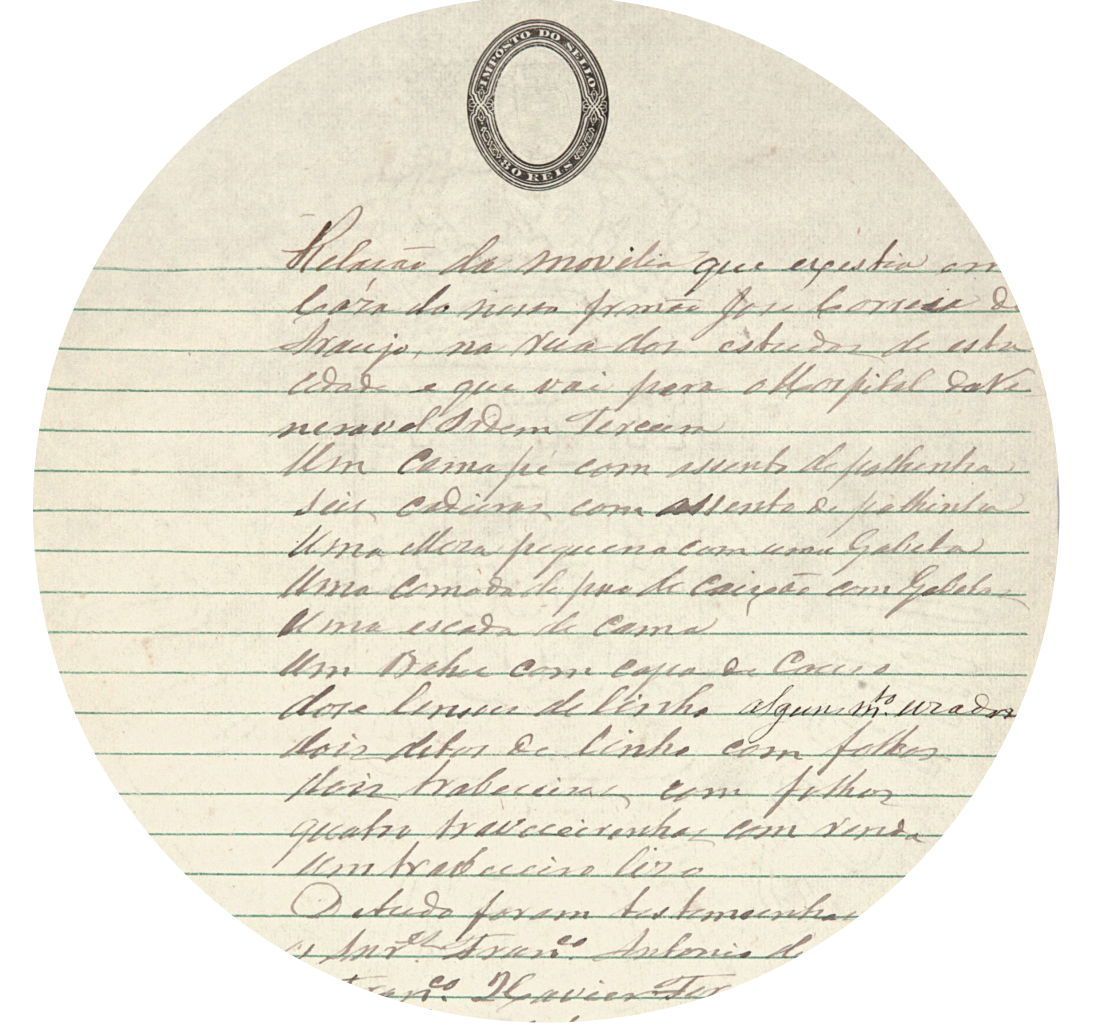 IMPOSTO DO SELLO
80 REIS
Relação da movilia que existia em
Caza do nosso Irmão Jose Correia d
Araujo, na rua dos estudos de esta
cidade e que vai para o Hospital da Ve
neravel Ordem Terceira
Um Camapé com assento de palhinha
seis cadieras com assento de palhinha
Uma Meza piquena com uma Gabeta
Uma comoda de pau de caixão com Gabetas
Uma escada de cama
Um Bahu com capa de Couro
doze lensois de linho alguns m.to uzados
dois ditos de linho com folhos
dois trabeceiros com folhos
quatro traveceirinhas com renda
Um trabeceiro lizo
De tudo foram testemunhas
os Snr.es Fran.co Antonio de
Fran.co Xavier